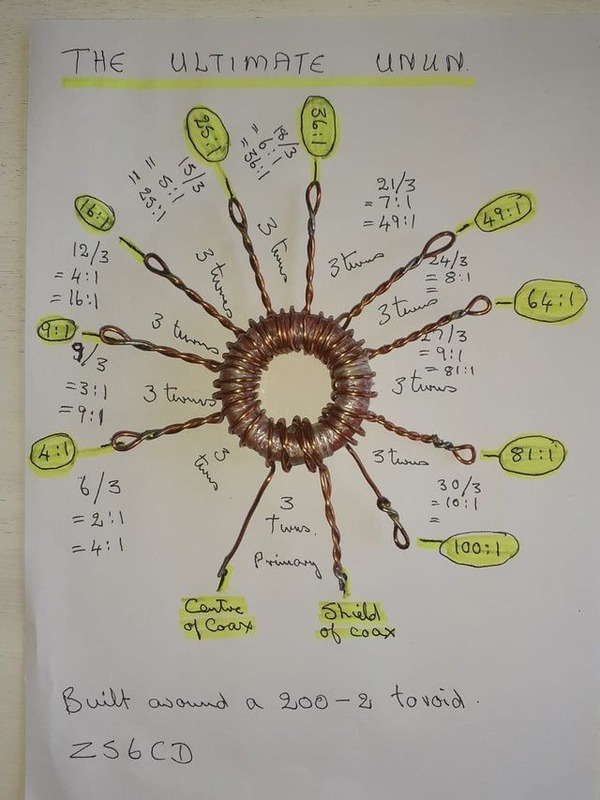 THE ULTIMATE UNUN.
25:1
36:1
15/3
= 5:1
= 25:1
18/3
= 6:1
= 36:1
21/3
= 7:1
= 49:1
49:1
16:1
12/3
= 4:1
= 16:1
3 turns
3 turns
3 turns
3 turns
24/3
= 8:1
=
64:1
9:1
9/3
=3:1
=9:1
3 turns
3 turns
27/3
= 9:1
= 81:1
3 turns
3 turns
4:1
6/3
= 2:1
= 4:1
3
turns
3 turns
81:1
30/3
= 10:1
=
100:1
3
Turns.
Primary
Centre
of Coax
Shield
of coax
Built around a 200-2 toroid.
ZS6CD